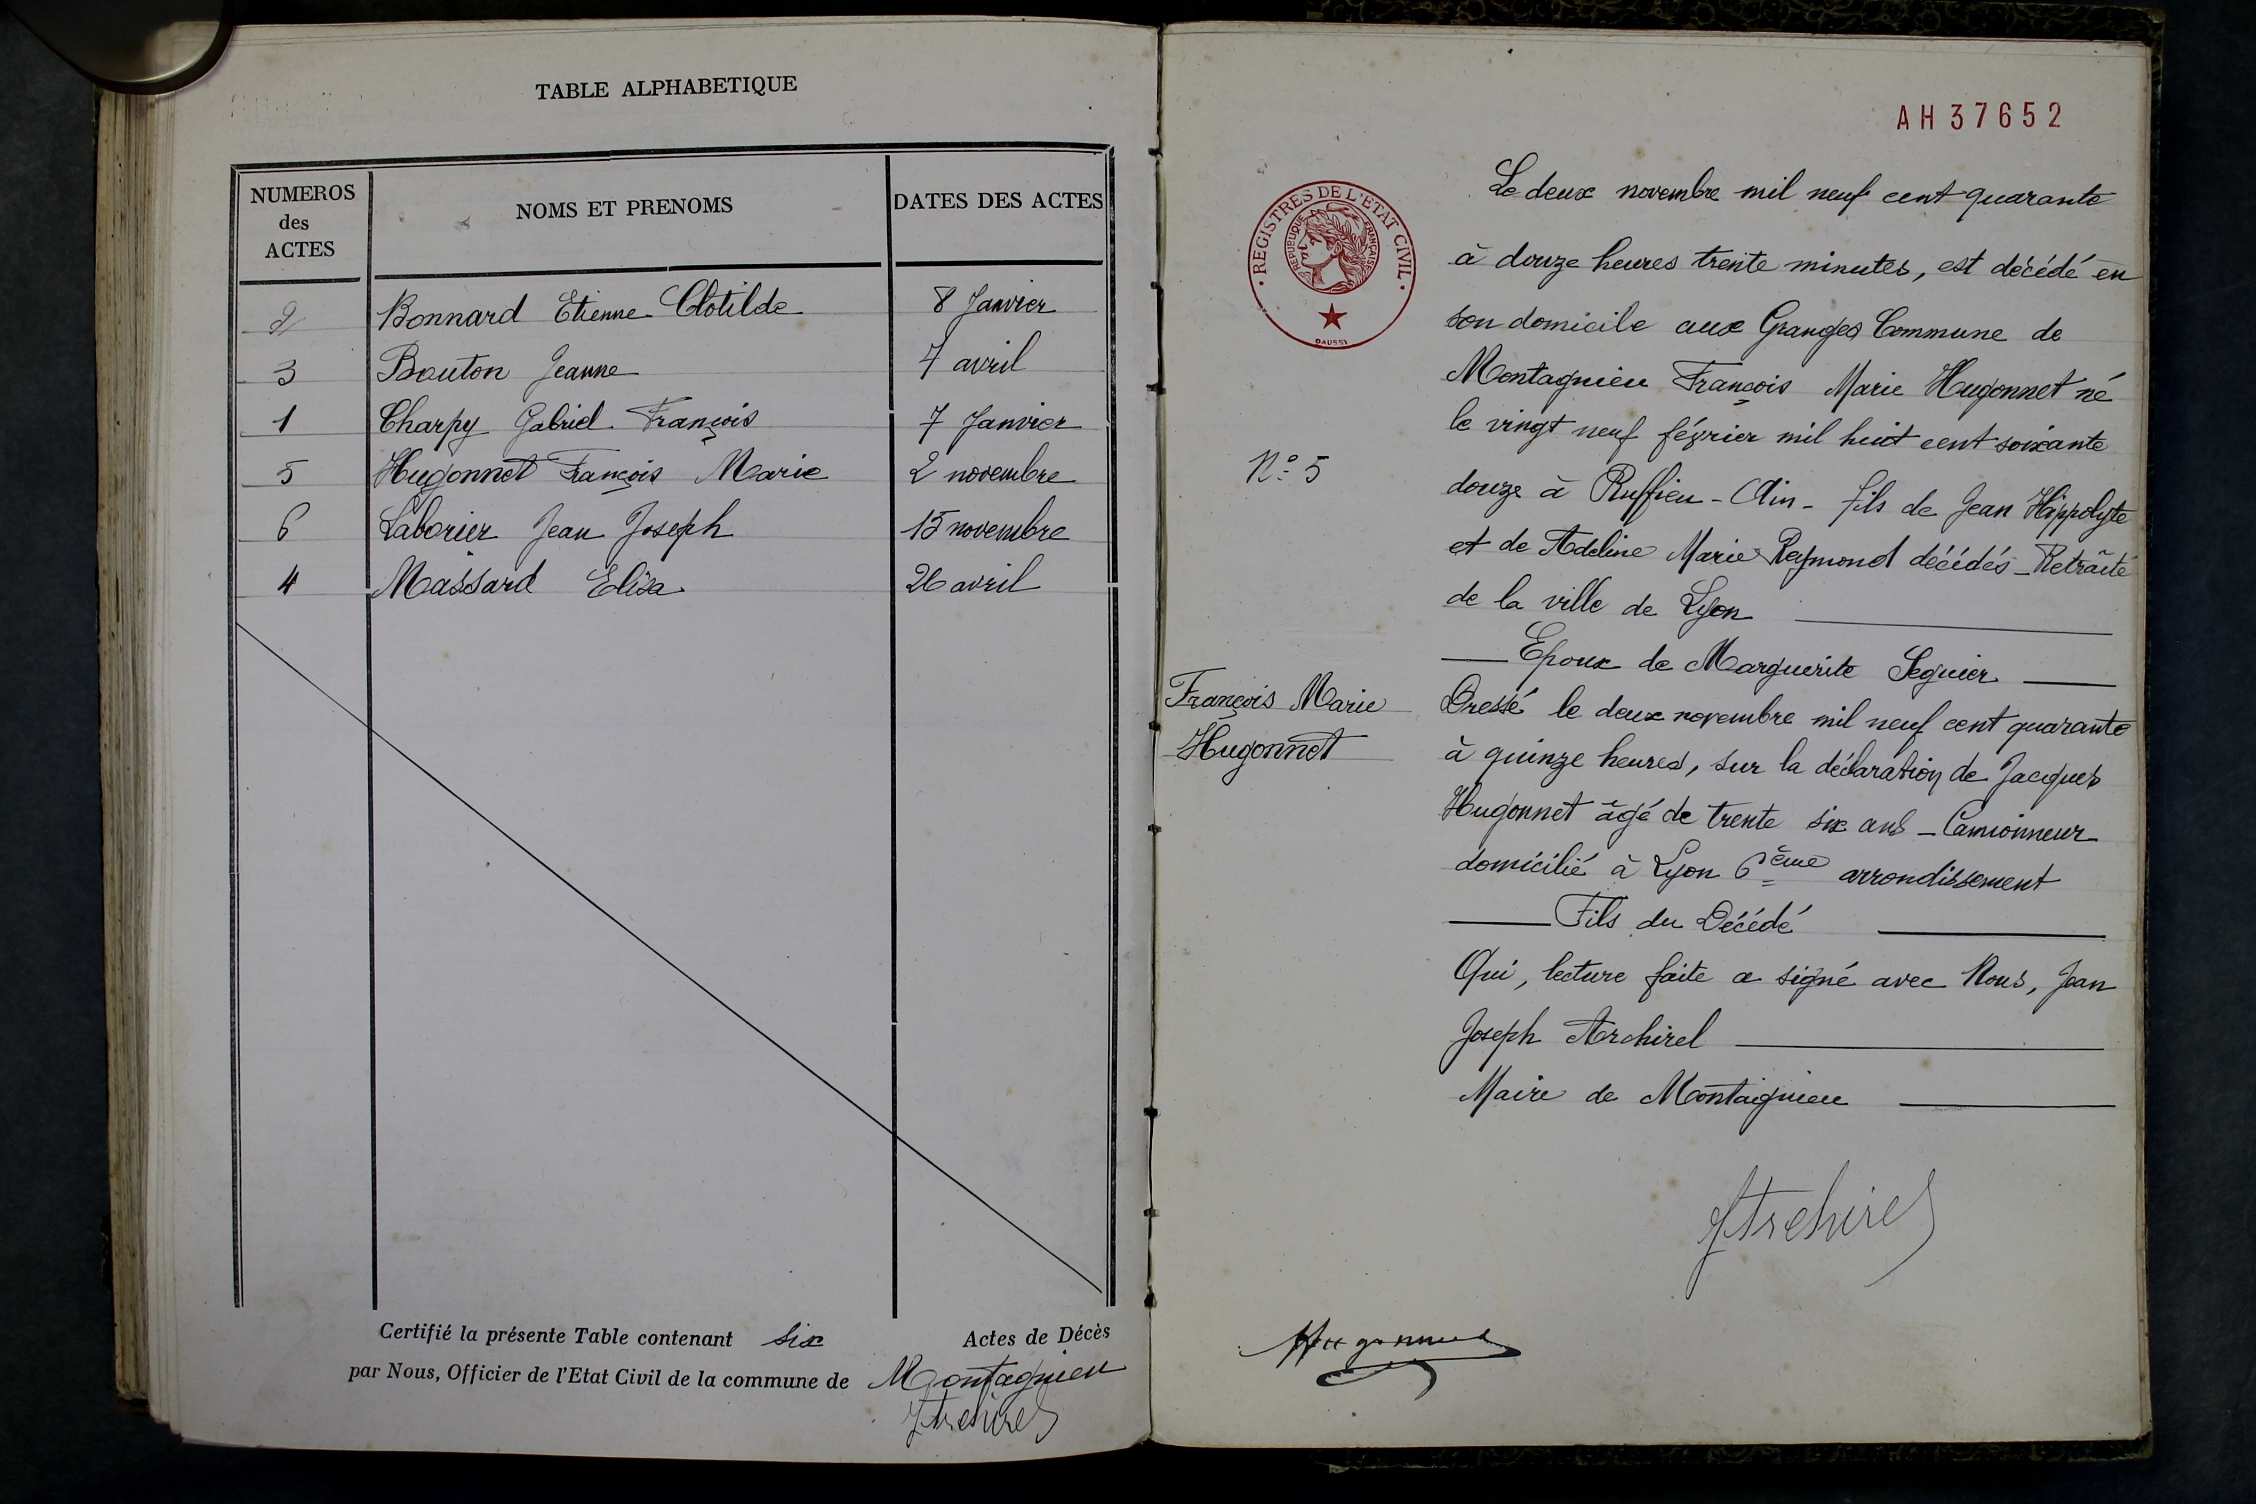 TABLE ALPHABETIQUE
NUMEROS des ACTES
NOMS ET PRENOMS
DATES DES ACTES
2 Bonnard Etienne Clotilde 8 Janvier
3 Bouton Jeanne 7 avril
1 Charpy Gabriel François 7 Janvier
5 Hugonnet François Marie 2 novembre
6 Laborier Jean Joseph 15 novembre
4 Massard Elisa 26 avril
Certifié la présente Table contenant six Actes de Décès
par Nous, Officier de l'Etat Civil de la commune de Montagnieu
JArchirel
AH37652
REGISTRES DE L'ETAT CIVIL
REPUBLIQUE FRANÇAISE
DAUSSY
N° 5
François Marie
Hugonnet
Le deux novembre mil neuf cent quarante
à douze heures trente minutes, est décédé en
son domicile aux Granges Commune de
Montagnieu François Marie Hugonnet né
le vingt neuf février mil huit cent soixante
douze à Ruffieu - Ain - fils de Jean Hippolyte
et de Adeline Marie Reymond décédés - Retraité
de la ville de Lyon
Epoux de Marguerite Seguier
Dressé le deux novembre mil neuf cent quarante
à quinze heures, sur la déclaration de Jacques
Hugonnet âgé de trente six ans - Camionneur
domicilié à Lyon 6ème arrondissement
Fils du Décédé
Qui, lecture faite a signé avec Nous, Jean
Joseph Archirel
Maire de Montagnieu
JArchirel
Hugonnet